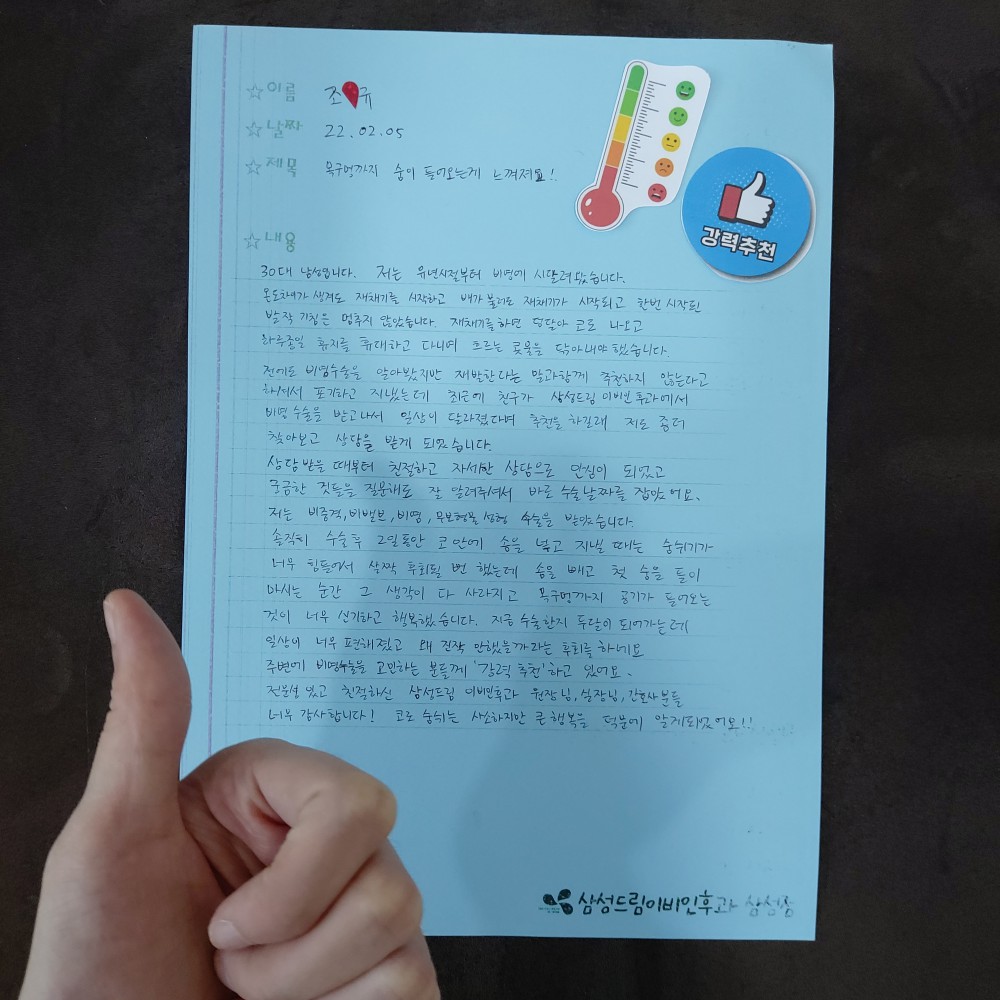 ☆이름 조 규
☆날짜 22.02.05
☆제목 목구멍까지 숨이 들어오는게 느껴져요!
강력추천
☆내용
30대 남성입니다. 저는 유년시절부터 비염에 시달려 왔습니다.
온도차가 생겨도 재채기를 시작하고 배가 불러도 재채기가 시작되고 한번 시작된
발작 기침은 멈추지 않았습니다. 재채기를 하면 덩달아 코도 나오고
하루종일 휴지를 휴대하고 다니며 흐르는 콧물을 닦아내야 했습니다.
전에도 비염수술을 알아봤지만 재발한다는 말과함께 추천하지 않는다고
하셔서 포기하고 지냈는데 최근에 친구가 삼성드림이비인후과에서
비염 수술을 받고나서 일상이 달라졌다며 추천을 하길래 저도 좀더
찾아보고 상담을 받게 되었습니다.
상담받을 때부터 친절하고 자세한 상담으로 안심이 되었고
궁금한 것들을 질문해도 잘 알려주셔서 바로 수술날짜를 잡았어요.
저는 비중격,비밸브,비염,무보형물 성형 수술을 받았습니다.
솔직히 수술후 2일동안 코안에 솜을 넣고 지낼 때는 숨쉬기가
너무 힘들어서 살짝 후회될 뻔 했는데 솜을 빼고 첫 숨을 들이
마시는 순간 그 생각이 다 사라지고 목구멍까지 공기가 들어오는
것이 너무 신기하고 행복했습니다. 지금 수술한지 두달이 되어가는데
일상이 너무 편해졌고 왜 진작 안했을까라는 후회를 하네요
주변에 비염수술을 고민하는 분들께 '강력 추천'하고 있어요.
전문성 있고 친절하신 삼성드림 이비인후과 원장님,실장님,간호사분들
너무 감사합니다! 코로 숨쉬는 사소하지만 큰행복을 덕분에 알게되었어요!!
삼성드림이비인후과 삼성점